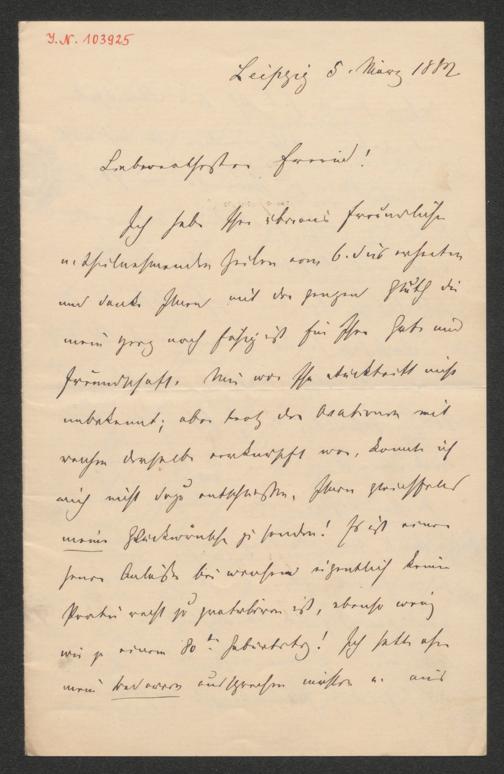 J.N. 103925
Leipzig 5. März 1882
Liebwerthester Freund!
Ich habe Ihre überaus freundlichen
u. theilnehmenden Zeilen vom 6. dis erhalten
und danke Ihnen mit der ganzen Gluth die
mein Herz noch fähig ist für Ihre Güte und
Freundschaft. Mir war Ihr Rücktritt nicht
unbekannt; aber trotz der Ovationen mit
welchen derselbe verknüpft war, konnte ich
mich nicht dazu entschliessen, Ihnen gleichfalls
meine Glückwünsche zu senden! Es ist einer
jener Anlässe bei welchem eigentlich keine
Partei recht zu gratuliren ist, ebenso wenig
wie zu einem 80ten Geburtstag! Ich hätte eher
mein Bedauern aussprechen müssen u. aus